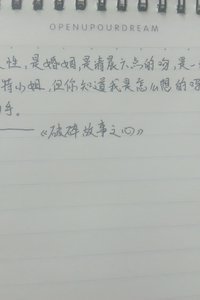 OPENUPYOURDREAM
性，是婚姻是清晨六点的吻，是一
特小姐，但你知道我是怎么想的吗
手。
——《破碎故事之心》